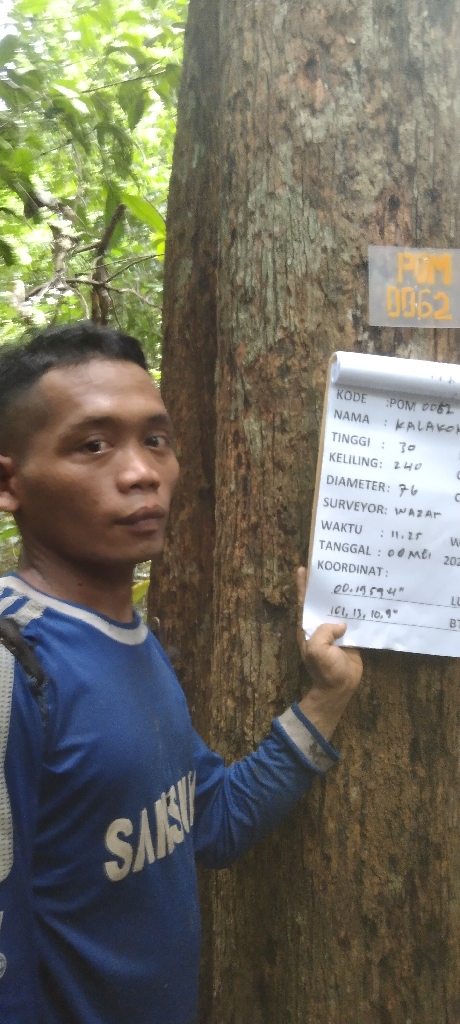 POM
0062
KODE :POM 0062
NAMA : KALAKOK
TINGGI : 30
KELILING: 240
DIAMETER: 76
SURVEYOR: WAZAR
WAKTU : 11.25 W
TANGGAL : 00 MEI 202
KOORDINAT :
00.19594" LU
101, 13, 10.9" BT
SAMSU